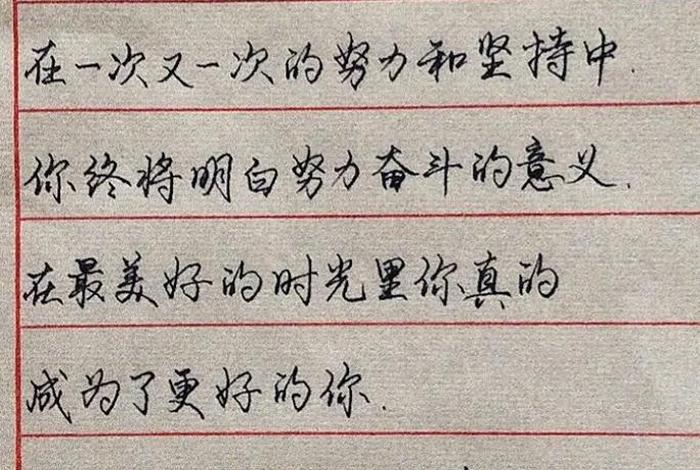 在一次又一次的努力和坚持中.
你终将明白努力奋斗的意义.
在最美好的时光里你真的
成为了更好的你.